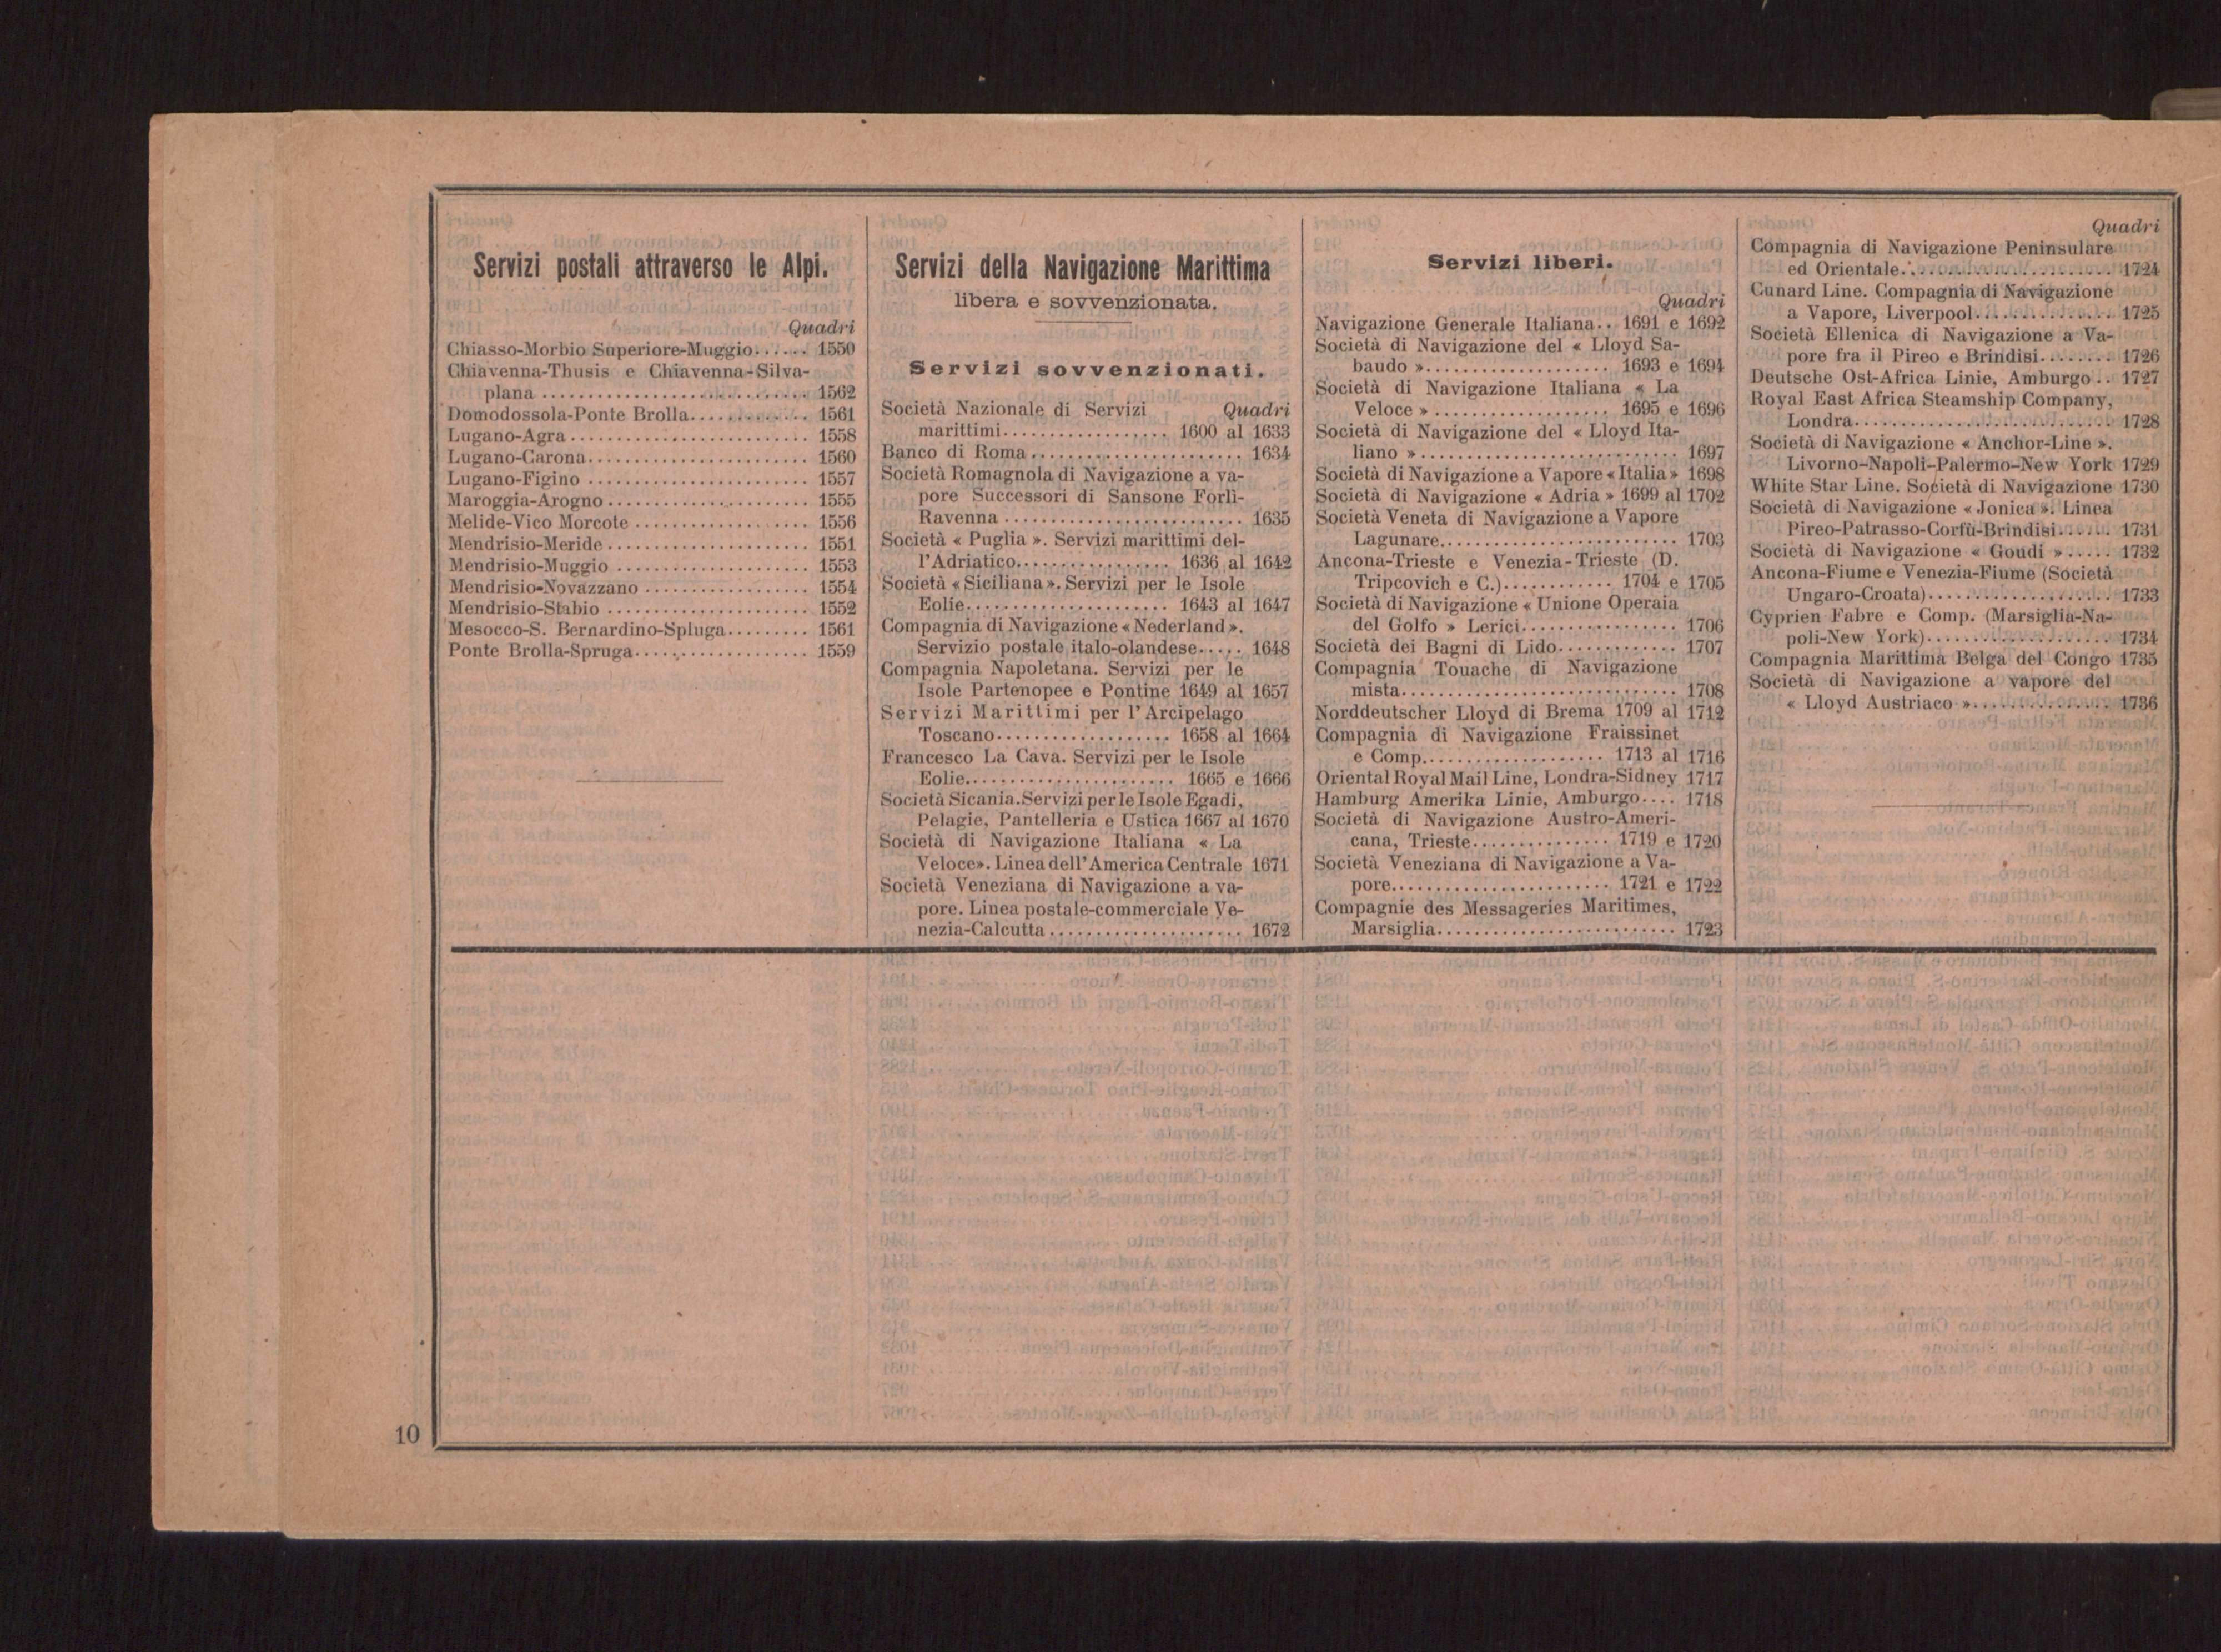 Servizi postali attraverso le Alpi.
Quadri
Chiasso-Morbio Superiore-Muggio...... 1550
Chiavenna-Thusis e Chiavenna-Silva-
plana ............................ 1562
Domodossola-Ponte Brolla............. 1561
Lugano-Agra .......................... 1558
Lugano-Carona........................ 1560
Lugano-Figino ........................ 1557
Maroggia-Arogno ...................... 1555
Melide-Vico Morcote .................. 1556
Mendrisio-Meride ..................... 1551
Mendrisio-Muggio ..................... 1553
Mendrisio-Novazzano .................. 1554
Mendrisio-Stabio ..................... 1552
Mesocco-S. Bernardino-Spluga......... 1561
Ponte Brolla-Spruga................... 1559
Servizi della Navigazione Marittima
libera e sovvenzionata.
Servizi sovvenzionati.
Società Nazionale di Servizi Quadri
marittimi.................. 1600 al 1633
Banco di Roma....................... 1634
Società Romagnola di Navigazione a va-
pore Successori di Sansone Forlì-
Ravenna ......................... 1635
Società « Puglia ». Servizi marittimi del-
l'Adriatico................. 1636 al 1642
Società « Siciliana ». Servizi per le Isole
Eolie....................... 1643 al 1647
Compagnia di Navigazione « Nederland ».
Servizio postale italo-olandese..... 1648
Compagnia Napoletana. Servizi per le
Isole Partenopee e Pontine 1649 al 1657
Servizi Marittimi per l'Arcipelago
Toscano................... 1658 al 1664
Francesco La Cava. Servizi per le Isole
Eolie....................... 1665 e 1666
Società Sicania. Servizi per le Isole Egadi,
Pelagie, Pantelleria e Ustica 1667 al 1670
Società di Navigazione Italiana « La
Veloce». Linea dell'America Centrale 1671
Società Veneziana di Navigazione a va-
pore. Linea postale-commerciale Ve-
nezia-Calcutta .................... 1672
Servizi liberi.
Quadri
Navigazione Generale Italiana.. 1691 e 1692
Società di Navigazione del « Lloyd Sa-
baudo »................... 1693 e 1694
Società di Navigazione Italiana « La
Veloce »................... 1695 e 1696
Società di Navigazione del « Lloyd Ita-
liano »........................... 1697
Società di Navigazione a Vapore « Italia » 1698
Società di Navigazione « Adria » 1699 al 1702
Società Veneta di Navigazione a Vapore
Lagunare......................... 1703
Ancona-Trieste e Venezia-Trieste (D.
Tripcovich e C.)............ 1704 e 1705
Società di Navigazione « Unione Operaia
del Golfo » Lerici................. 1706
Società dei Bagni di Lido............. 1707
Compagnia Touache di Navigazione
mista............................. 1708
Norddeutscher Lloyd di Brema 1709 al 1712
Compagnia di Navigazione Fraissinet
e Comp.................... 1713 al 1716
Oriental Royal Mail Line, Londra-Sidney 1717
Hamburg Amerika Linie, Amburgo.... 1718
Società di Navigazione Austro-Ameri-
cana, Trieste............... 1719 e 1720
Società Veneziana di Navigazione a Va-
pore....................... 1721 e 1722
Compagnie des Messageries Maritimes,
Marsiglia......................... 1723
Quadri
Compagnia di Navigazione Peninsulare
ed Orientale...................... 1724
Cunard Line. Compagnia di Navigazione
a Vapore, Liverpool............... 1725
Società Ellenica di Navigazione a Va-
pore fra il Pireo e Brindisi........ 1726
Deutsche Ost-Africa Linie, Amburgo.. 1727
Royal East Africa Steamship Company,
Londra........................... 1728
Società di Navigazione « Anchor-Line ».
Livorno-Napoli-Palermo-New York 1729
White Star Line. Società di Navigazione 1730
Società di Navigazione « Jonica ». Linea
Pireo-Patrasso-Corfù-Brindisi...... 1731
Società di Navigazione « Goudi »..... 1732
Ancona-Fiume e Venezia-Fiume (Società
Ungaro-Croata).................... 1733
Cyprien Fabre e Comp. (Marsiglia-Na-
poli-New York).................... 1734
Compagnia Marittima Belga del Congo 1735
Società di Navigazione a vapore del
« Lloyd Austriaco »............... 1736
10